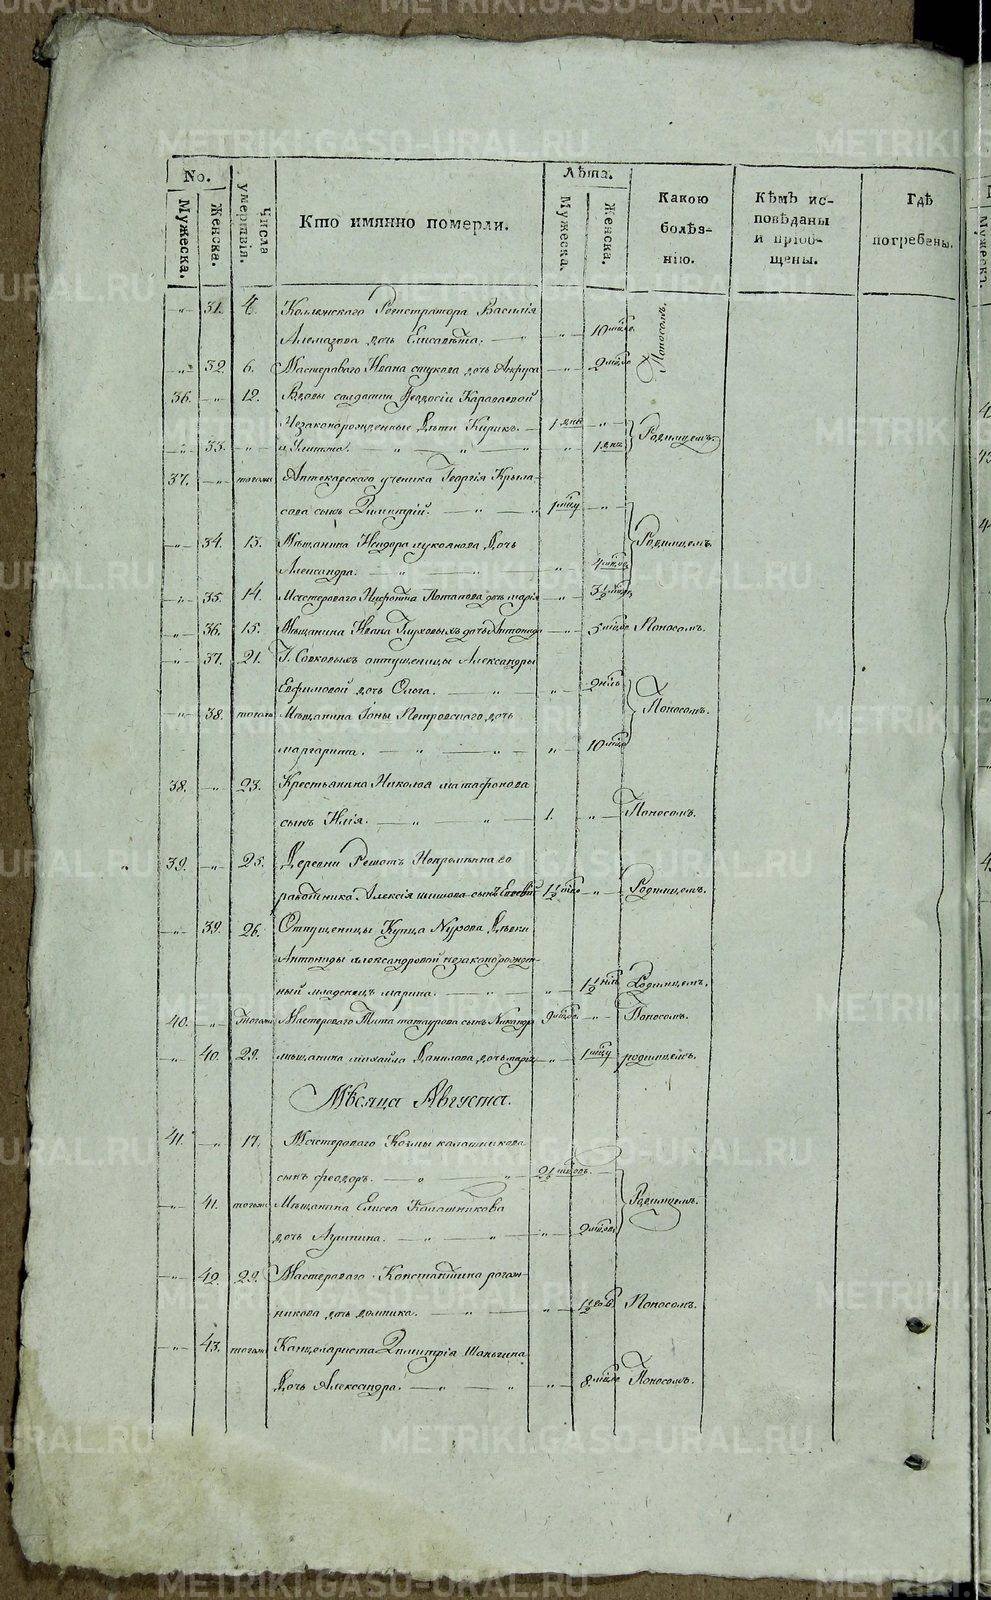 METRIKI.GASO-URAL.RU
No.
Мужеска.
Женска.
Числа умертвія.
Кто имянно померли.
Лѣта.
Мужеска.
Женска.
Какою болѣз-нію.
Кѣмъ ис-повѣданы и пріоб-щены.
Гдѣ погребены.
-"- 31. 4. Коллежскаго Регистратора Василія
Алемазова дочь Елисавѣта. -"- 10 мцов. Поносомъ
-"- 32. 6. Мастероваго Ивана дочь Анфуса -"- 9 мцов
36. -"- 12. Вдовы солдатки Феодосіи Караваевой
Незаконорожденные дѣти Кирик. 1 дня -"- Родимцемъ
-"- 33. -"- и Улитта. -"- 1 дни
37. -"- тогожъ Аптекарскаго ученика Георгія Крыла-
сова сынъ Димитрій. 1 мцу -"-
-"- 34. 13. Мѣщанина дочь Родимцемъ
Александра. -"- 4 мцов
-"- 35. 14. Мастероваго Нифонта Потапова дочь марія -"- 3½
-"- 36. 15. Мѣщанина Ивана Глуховыхъ дочь Антонида -"- 5 мцов Поносомъ.
-"- 37. 21. Г. отпущеницы Александры
Евфимовой дочь Ольга. -"- 9 нѣд Поносомъ.
-"- 38. тогожъ Мѣщанина Іоны Петровскаго дочь
маргарита. -"- 10 мцов
38. -"- 23. Крестьянина Николая матафонова
сынъ Илія. 1. -"- Поносомъ.
39. -"- 25. Деревни Решотъ Непремѣннаго
работника Алексія шишова сынъ 1½ -"- Родимцемъ.
-"- 39. 26. Отпущеницы Купца Дѣвки
Антониды александровой незаконорожден-
ный младенецъ марина. -"- 1½ нѣд Родимцемъ.
40. -"- тогожъ Мастероваго Тита татаурова сынъ Никандр 9 мцов. -"- Поносомъ.
-"- 40. 29. мѣщанина михайла Данилова дочь марія -"- 1 мцу родимцемъ.
Мѣсяца Августа.
41. -"- 17. Мастероваго Козмы калашникова
сынъ феодоръ. 2½ мцовъ. Родимцемъ.
-"- 41. тогожъ Мѣщанина Елисея Калашникова
дочь -"- 9 мцовъ
-"- 42. 29. Мастероваго Константина рогож-
никова дочь домника. -"- 1½ Поносомъ.
-"- 43. тогожъ Канцеляриста Димитрія
Дочь Александра. -"- 8 мцов Поносомъ.